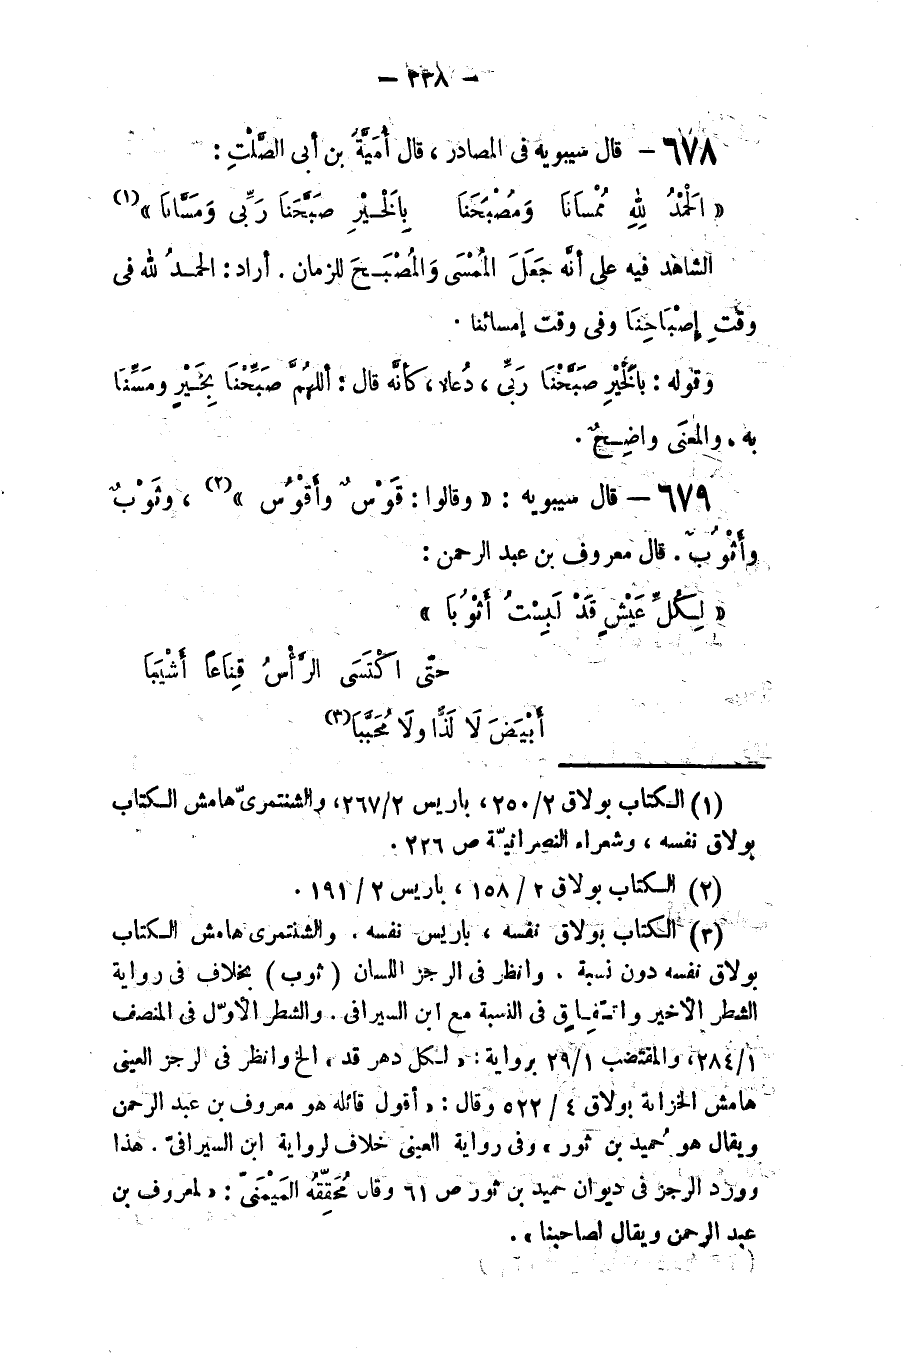 — ٣٣٨ —
٦٧٨ — قال سيبويه فى المصادر ، قال أُمَيَّةُ بن أبى الصَّلْتِ :
« الحَمْدُ لِلهِ مُمْسانَا وَمُصْبَحَنَا بِالْخَيْرِ صَبَّحَنَا رَبِّى وَمَسَّانَا »(١)
الشاهد فيه على أنَّه جَعَلَ المُمْسَى وَالمُصْبَحَ للزمان . أراد : الحمدُ لله فى
وقْتِ إصْبَاحِنَا وفى وقت إمسائنا .
وقوله : بالْخَيْرِ صَبَّحْنَا رَبِّى ، دُعاء ، كأنَّه قال : أللهُمَّ صَبِّحْنَا بِخَيْرٍ ومَسِّنَا
به ، والمعْنَى واضِحٌ .
٦٧٩ — قال سيبويه : « وقالوا : قَوْسٌ وأَقْوُس »(٢) ، وثَوْبٌ
وأَثْوُب . قال معروف بن عبد الرحمن :
« لِكُلِّ عَيْشٍ قَدْ لَبِسْتُ أَثْوُبَا »
حتّى اكْتَسَى الرَّأْسُ قِنَاعاً أَشْيَبَا
أَبْيَضَ لَا لَذًّا ولَا مُحَبَّبَا(٣)
(١) الكتاب بولاق ٢/٢٥٠ ، باريس ٢/٢٦٧، والشنتمرىّ هامش الكتاب
بولاق نفسه ، وشعراء النصرانيّة ص ٢٢٦ .
(٢) الكتاب بولاق ٢ / ١٥٨ ، باريس ٢ / ١٩١ .
(٣) الكتاب بولاق نفسه ، باريس نفسه . والشنتمرى هامش الكتاب
بولاق نفسه دون نسبة . وانظر فى الرجز اللسان ( ثوب ) بخلاف فى رواية
الشطر الأخير واتفاق فى النسبة مع ابن السيرافى . والشطر الأوّل فى المنصف
١/٢٨٤، والمقتضب ١/٢٩ برواية : « لكل دهر قد » الخ وانظر فى لرجز العينى
هامش الخزانة بولاق ٤ / ٥٢٢ وقال : « أقول قائله هو معروف بن عبد الرحمن
ويقال هو حُميد بن ثور » وفى رواية العينى خلاف لرواية ابن السيرافىّ . هذا
وورد الرجز فى ديوان حميد بن ثور ص ٦١ وقال مُحَقِّقُهُ المَيْمَنىّ : « لمعروف بن
عبد الرحمن ويقال لصاحبنا » .